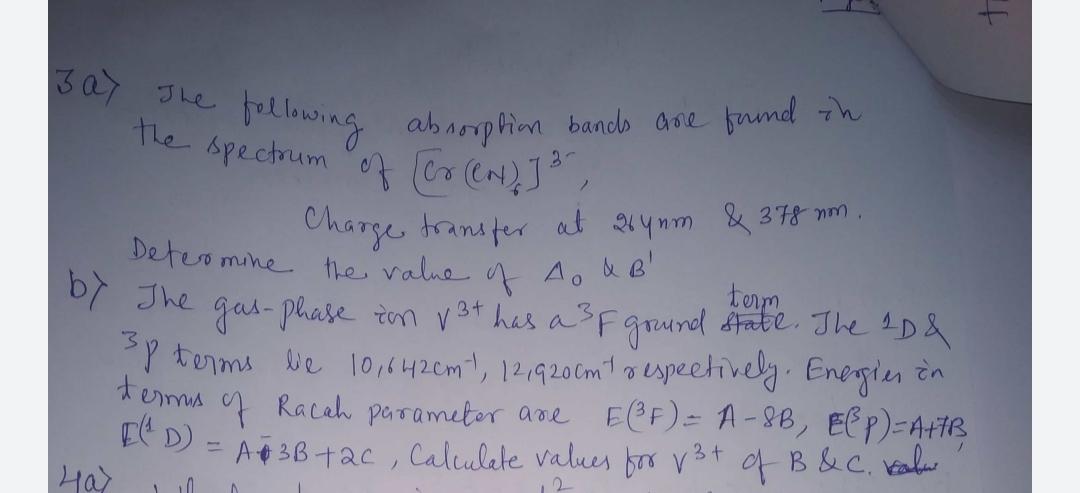 3a) The following absorption bands are found in
the spectrum of [Cr(CN)6]3-,
Charge transfer at 264nm & 378nm.
Determine the value of Δo & B'
b) The gas-phase ion V3+ has a 3F ground term state. The 1D &
3P terms lie 10,642cm-1, 12,920cm-1 respectively. Energies in
terms of Racah parameter are E(3F) = A-8B, E(3P)=A+7B,
E(1D) = A-3B+2C, Calculate values for V3+ of B & C.
4a)